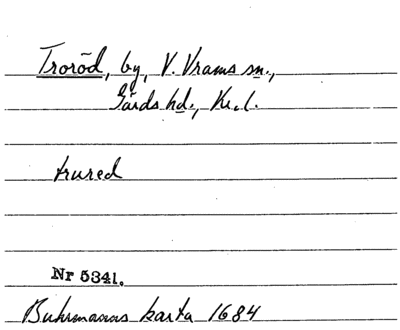 Troröd, by, V. Vrams sn.,
Gärds hd., Kr. l.
trured
Nr 5341.
Buhrmanns karta 1684